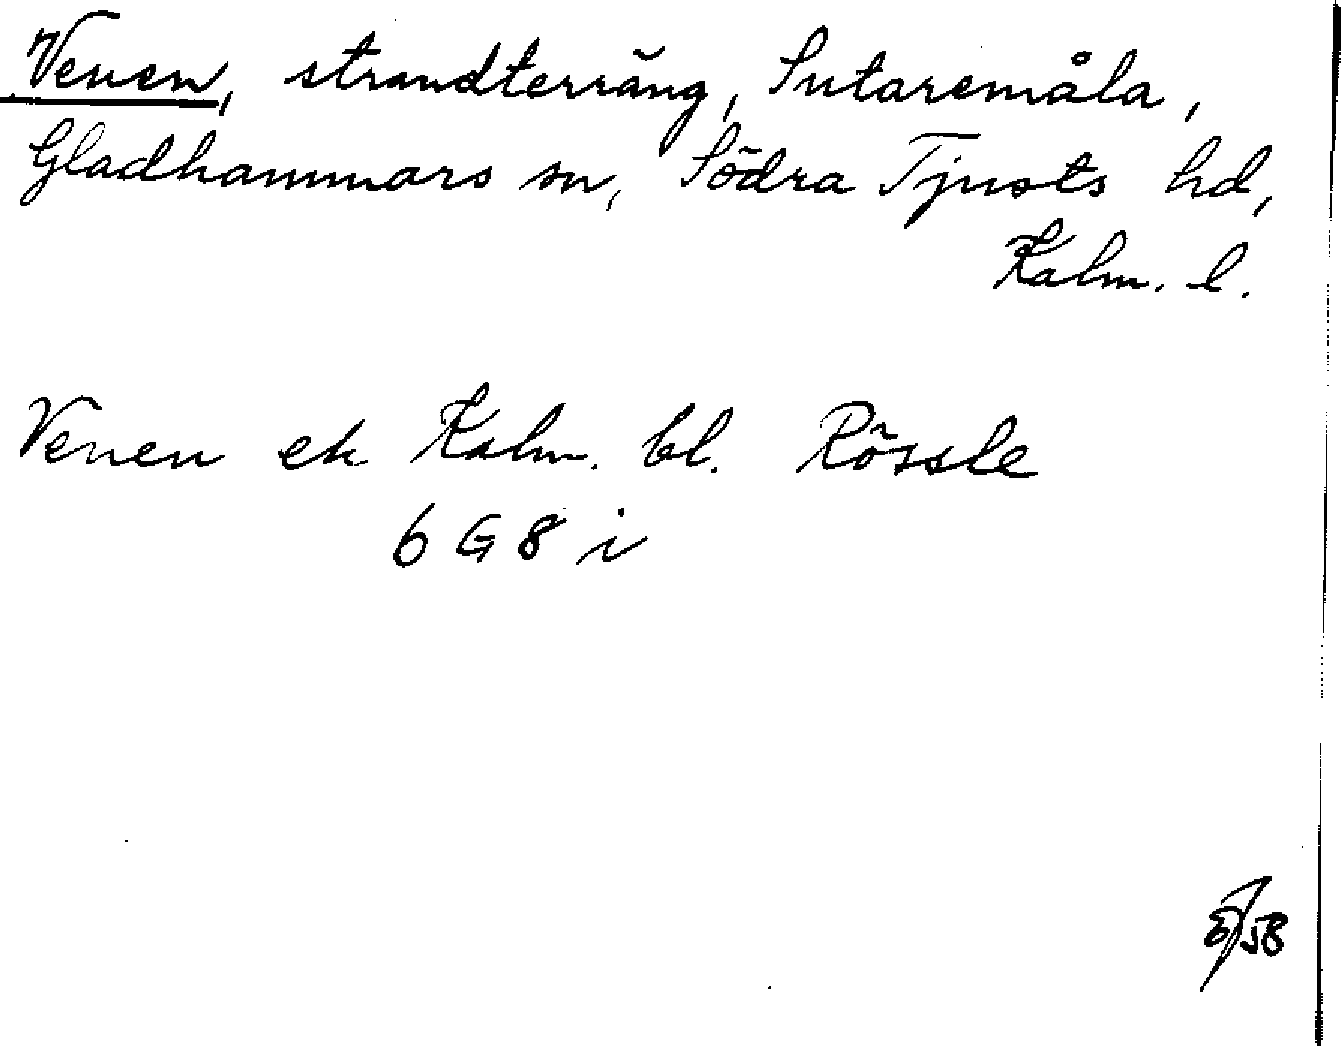 Venen, strandterräng, Sutaremåla,
Gladhammars sn, Södra Tjusts hd,
Kalm. l.
Venen ek Kalm. bl. Rössle
6 G 8 i